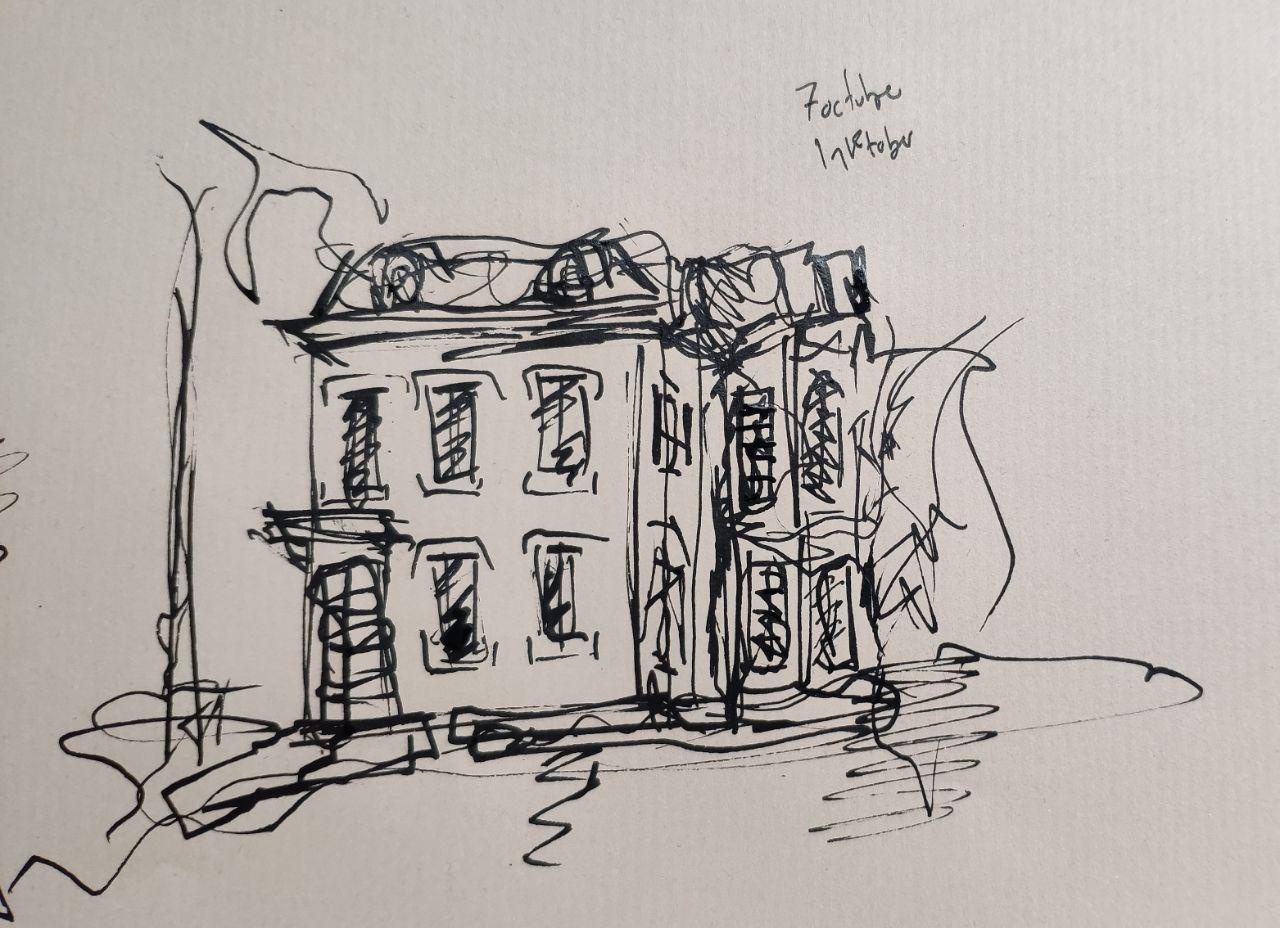 7 octubre
Inktober